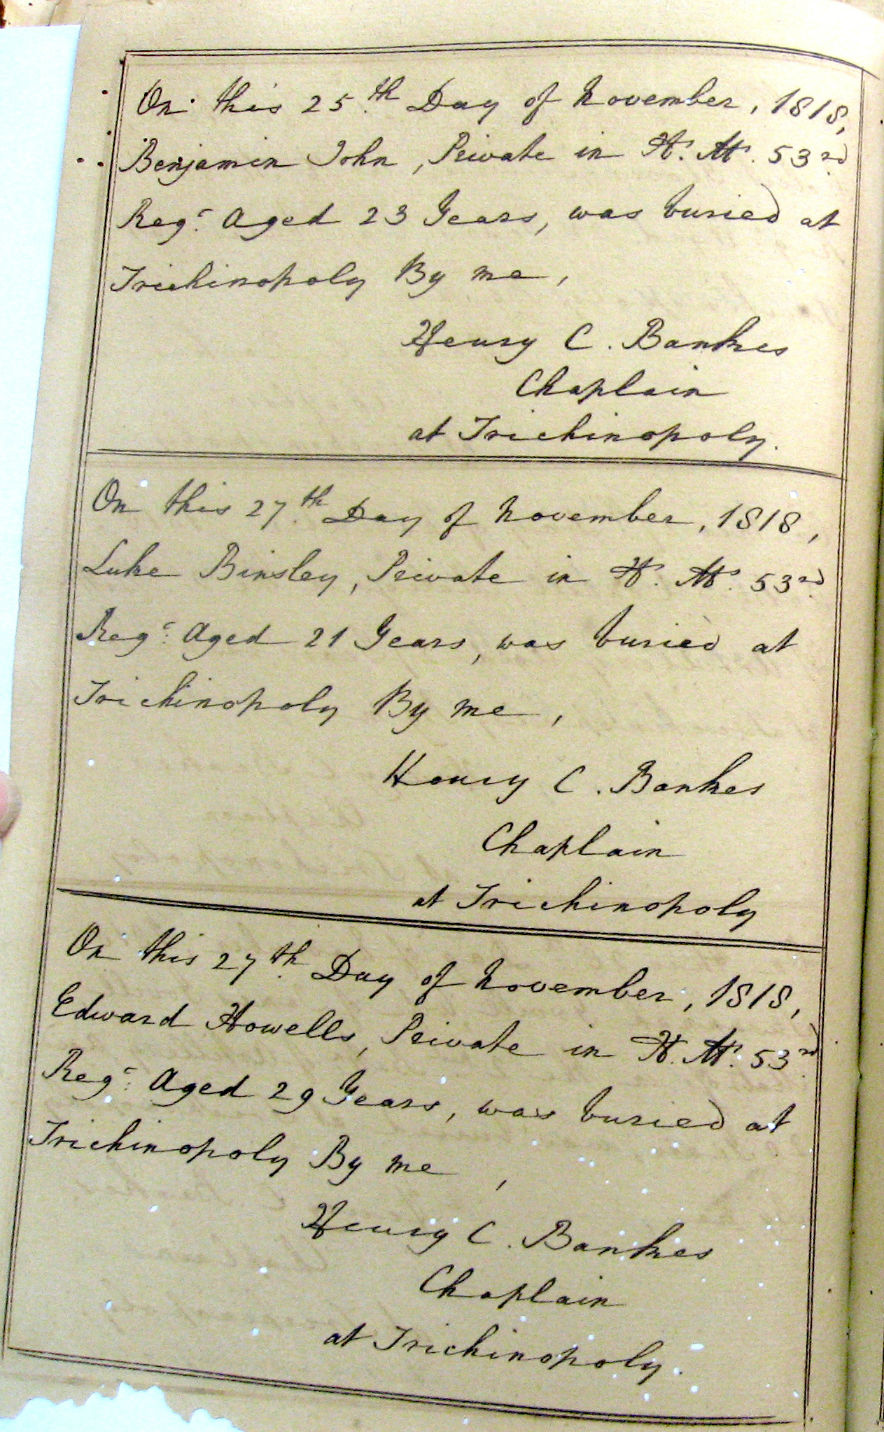 On this 25th Day of November, 1818,
Benjamin John, Private in H. M. 53rd
Regt Aged 23 Years, was buried at
Trichinopoly By me,
Henry C. Bankes
Chaplain
at Trichinopoly.
On this 27th Day of November, 1818,
Luke Binsley, Private in H. M. 53rd
Regt Aged 21 Years, was buried at
Trichinopoly By me,
Henry C. Bankes
Chaplain
at Trichinopoly
On this 27th Day of November, 1818,
Edward Howells, Private in H. M. 53rd
Regt Aged 29 Years, was buried at
Trichinopoly By me,
Henry C. Bankes
Chaplain
at Trichinopoly.